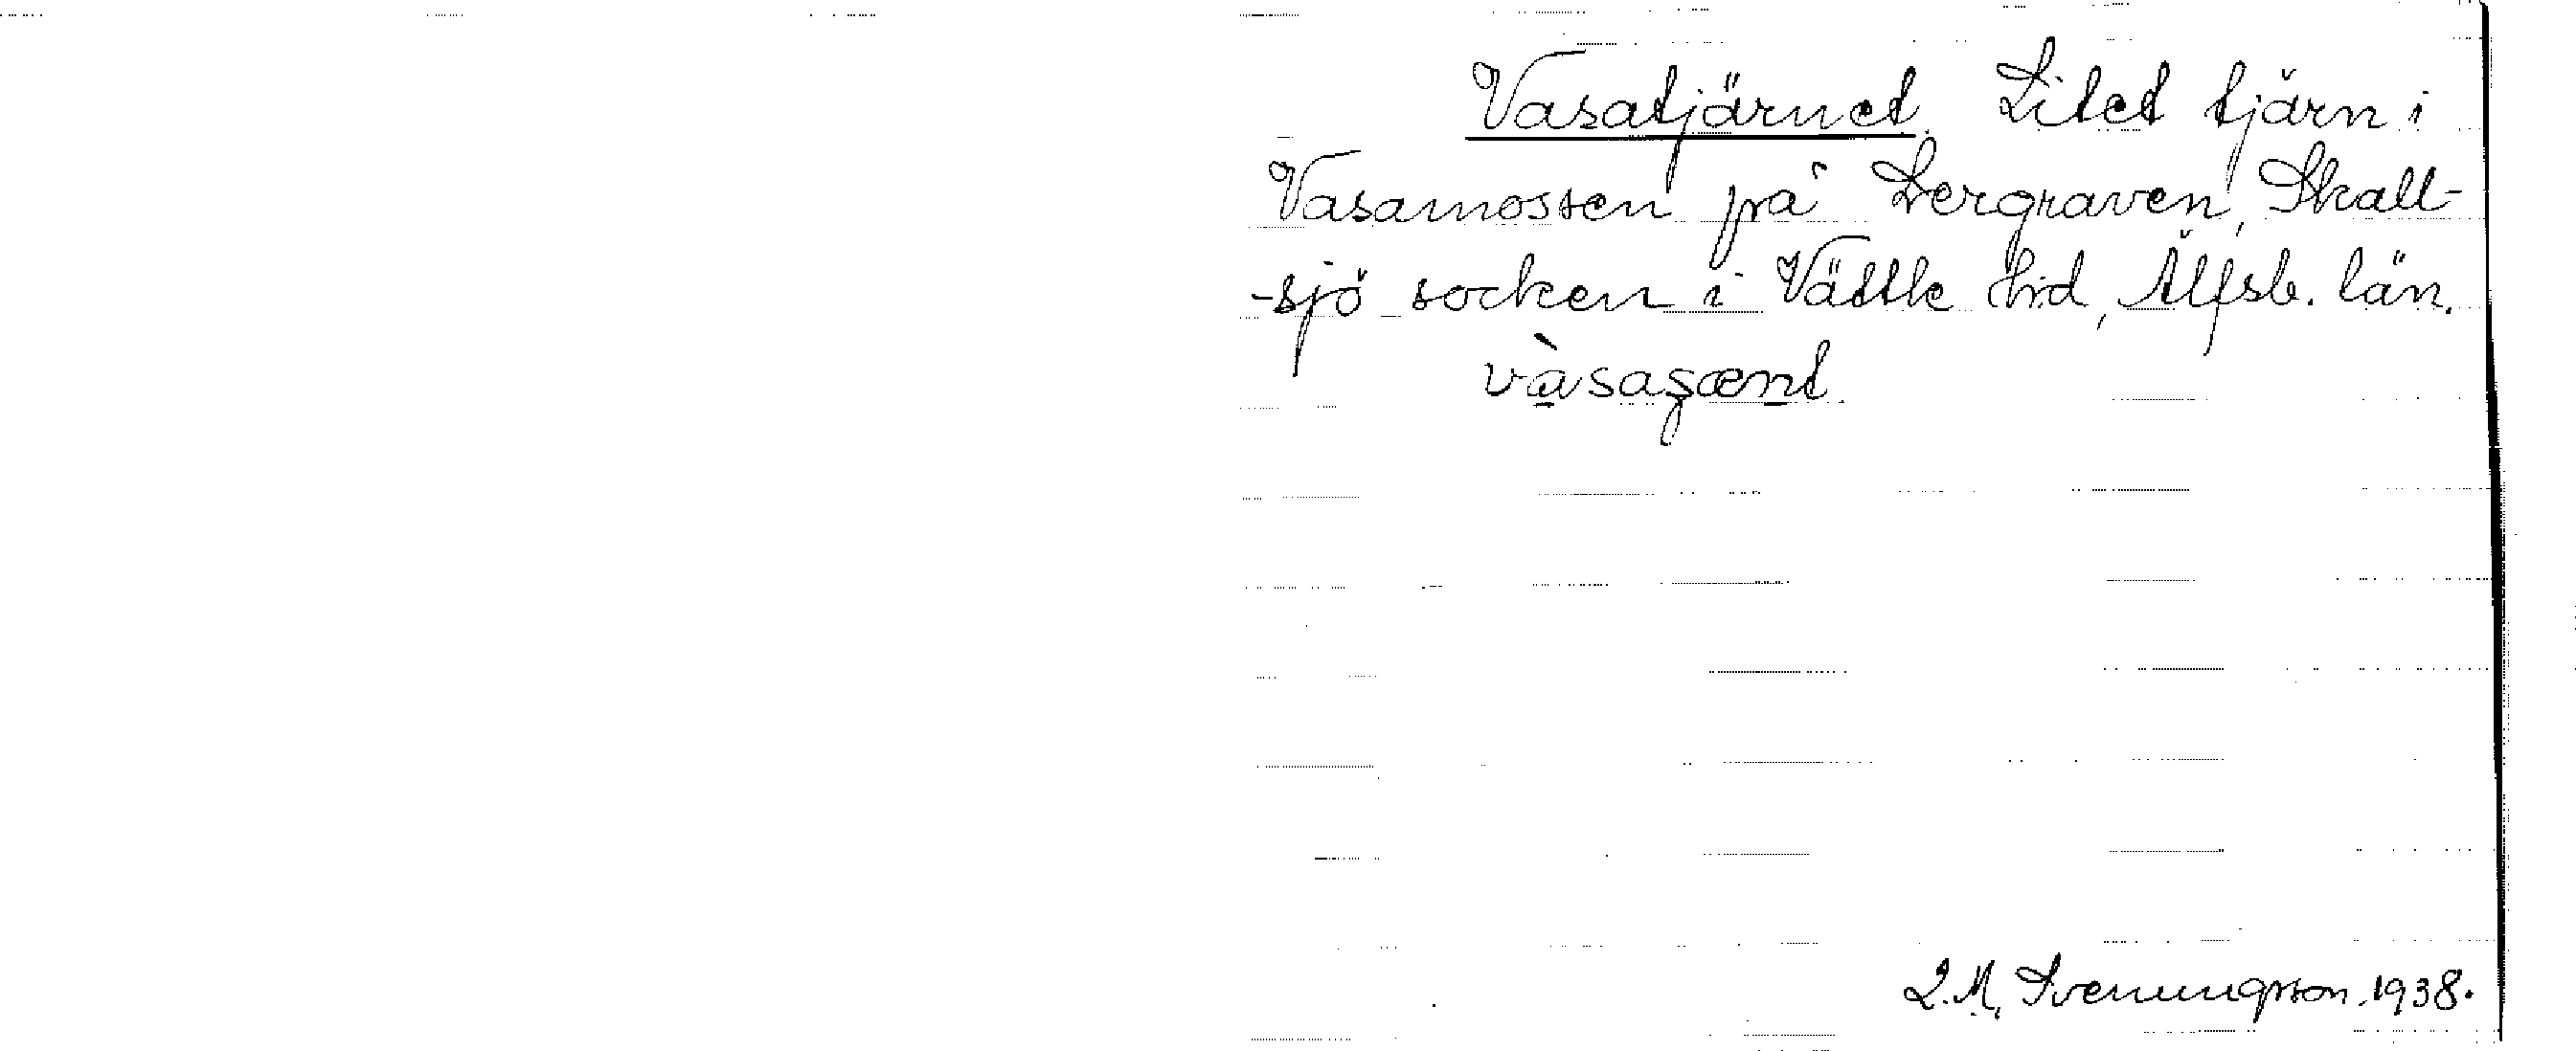 Vasatjärnet. Litet tjärn i
Vasamossen på Lergraven, Skall-
-sjö socken i Vättle hrd, Älfsb. län.
vàsaʂænt.
L.M. Svenungsson, 1938.